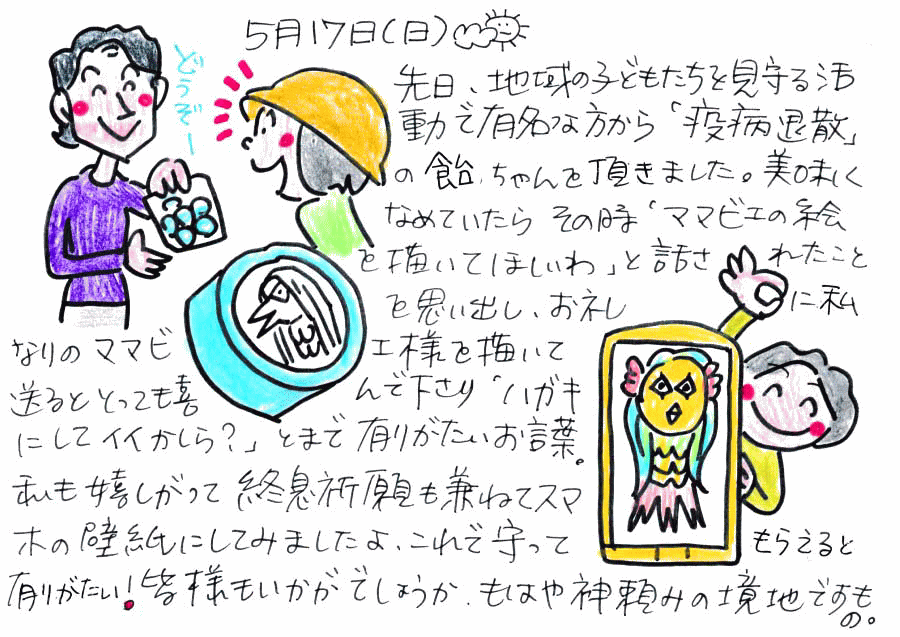 5月17日(日)
どうぞー
先日、地域の子どもたちを見守る活
動で有名な方から「疫病退散」
の飴ちゃんを頂きました。美味しく
なめていたらその時「ママビエの絵
を描いてほしいわ」と話されたこと
を思い出し、お礼に私
なりのママビエ様を描いて
送るととっても喜んで下さり「ハガキ
にしてイイかしら?」とまで有りがたいお言葉。
私も嬉しがって終息祈願も兼ねてスマ
ホの壁紙にしてみましたよ、これで守ってもらえると
有りがたい!皆様もいかがでしょうか、もはや神頼みの境地ですもの。